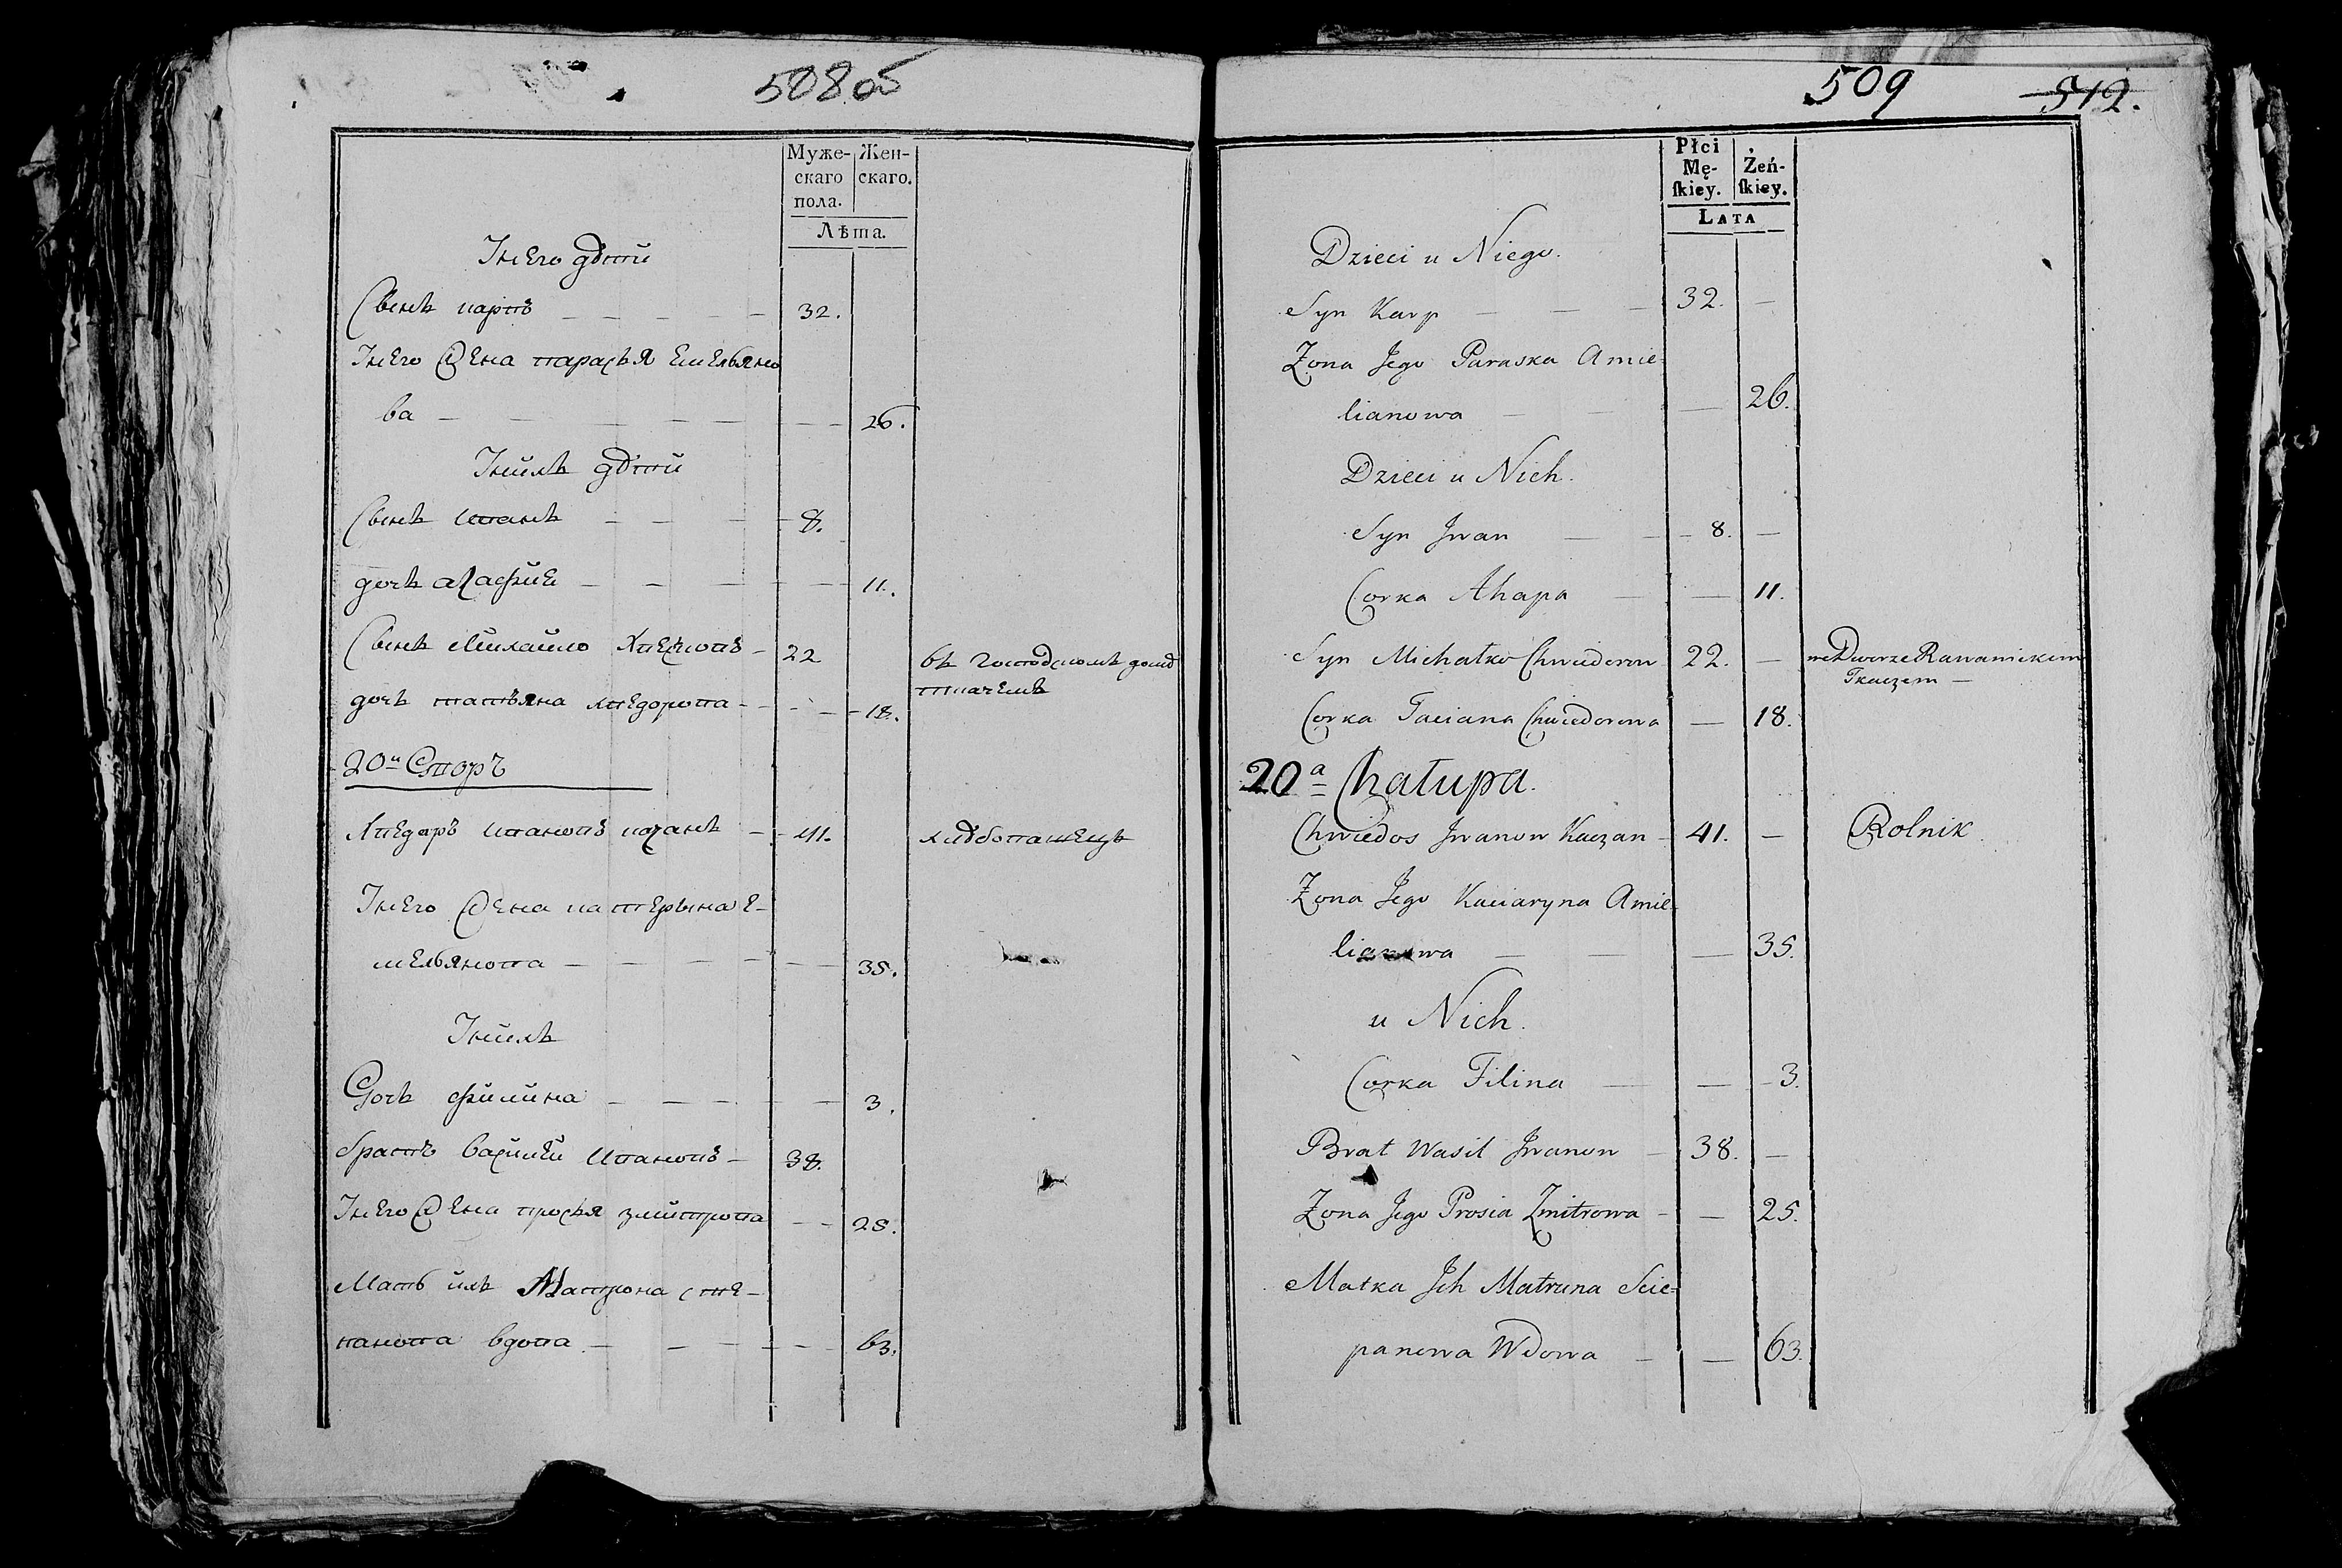 508 об
Муже-
скаго
пола.
Жен-
скаго.
Лѣта.
Унего дѣти
Сынъ карпъ 32.
Унего Жена парасья Емельяно
ва 26.
Унихъ дѣти
Сынъ иванъ 8.
дочь агафия 11.
Сынъ Михайло Хведоровъ 22 въ господскомъ домѣ
ткачемъ
дочь татьяна хведорова 18.
20й Дворъ
Хведоръ ивановъ качанъ 41. хлѣбопашецъ
Унего Жена катерына Е-
мельянова 35.
Унихъ
Дочь филина 3.
братъ василей ивановъ 38.
Унего Жена просья змитрова 25.
Мать ихъ Матрона сте-
панова вдова 63.
509
512.
Płci
Mę-
ſkiey.
Żeń-
ſkiey.
Lata
Dzieci u Niego.
Syn Karp 32.
Zona Jego Paraska Amie=
lianowa 26.
Dzieci u Nich.
Syn Jwan 8.
Corka Ahapa 11.
Syn Michałko Chwiedorow 22. we Dworze Rawanickim
Tkaczem
Corka Taciana Chwiedorowa 18.
20a Chałupa.
Chwiedos Jwanow Kaczan 41. Rolnik
Zona Jego Kaciaryna Amie=
lianowa 35.
u Nich.
Corka Filina 3.
Brat Wasil Jwanow 38.
Zona Jego Prosia Zmitrowa 25.
Matka Jch Matruna Scie=
panowa Wdowa 63.